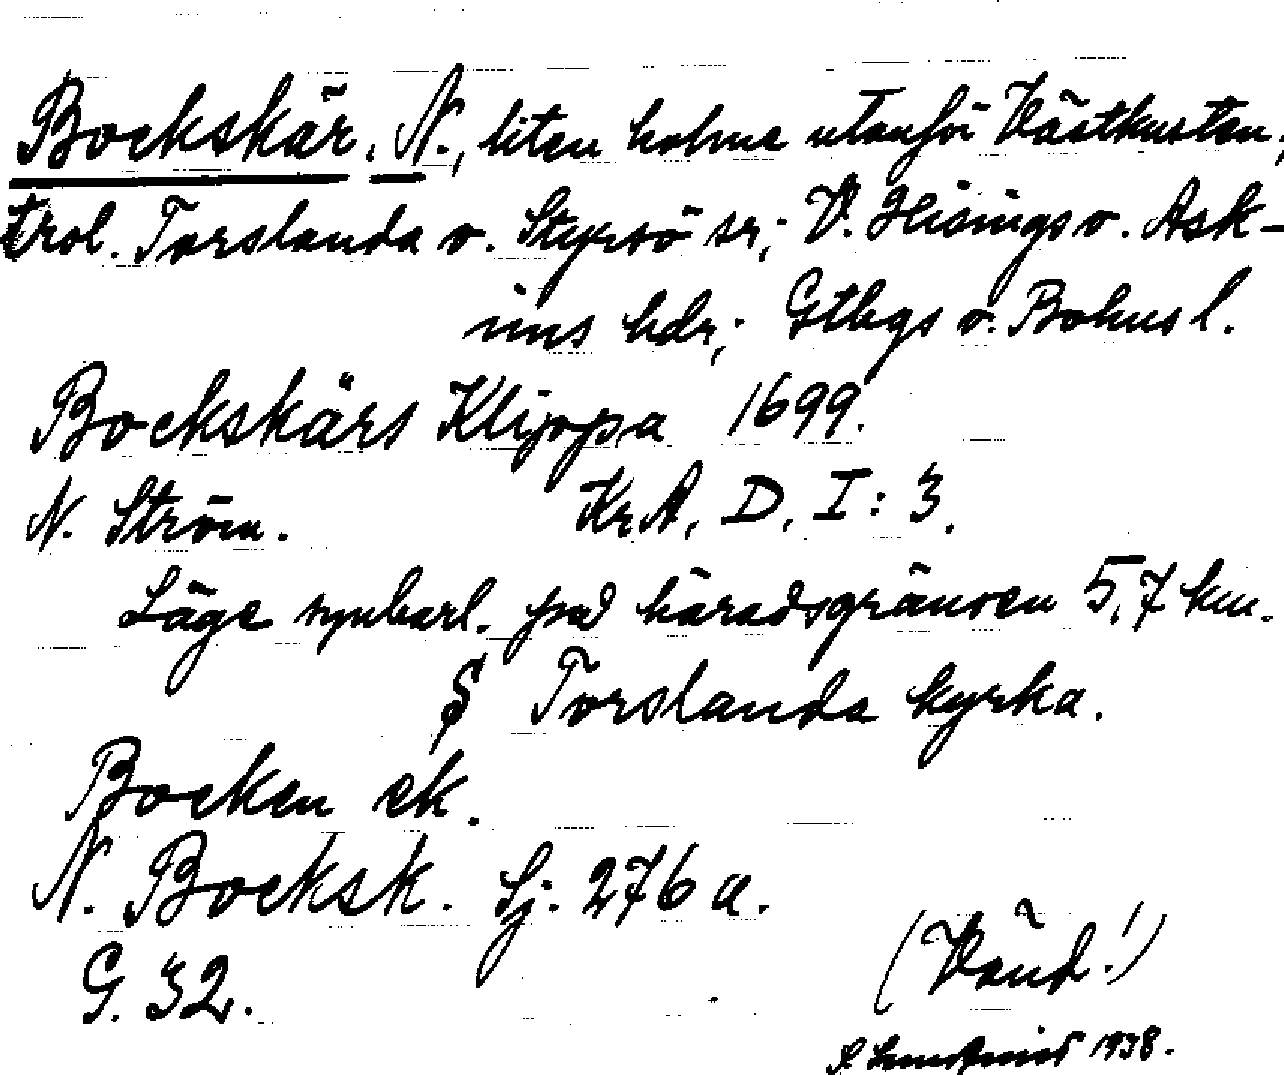 Bockskär, N., liten holme utanför Västkusten;
trol. Torslanda o. Styrsö sr; V. Hisings o. Ask-
ims hdr; Gtbgs o. Bohus l.
Bockskärs Klippa 1699.
N. Ström. KrA, D, I: 3.
Läge synbarl. på häradsgränsen 5,7 km.
S Torslanda kyrka.
Bocken ek.
N. Bocksk. Sj. 276 a.
G. 32.
(Vänd!)
1938.